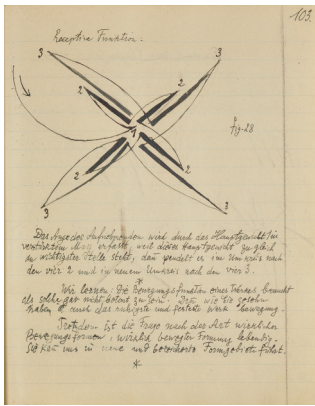 103.
Rezeptive Funktion:
3
3
2
2
1
fig. 28
2
3
3
Das Auge des Aufnehmenden wird durch das Hauptgewicht 1 im
verstärktem Mass erfasst, weil dieses Hauptgewicht zugleich
an wichtigster Stelle steht, dann pendelt es im Umkreis nach
den vier 2 und in neuem Umkreis nach den vier 3.
Wir lernen: die Bewegungsfunktion eines Thema's braucht
als solche gar nicht betont zu sein. Denn wie Sie gesehen
haben ist auch das ruhigste und festeste Werk Bewegung.
Trotzdem ist die Frage nach der Art wirklicher
Bewegungsformen, wirklich bewegter Formung lebendig.
Sie hat uns in neue und bereicherte Formgebiete geführt.
*